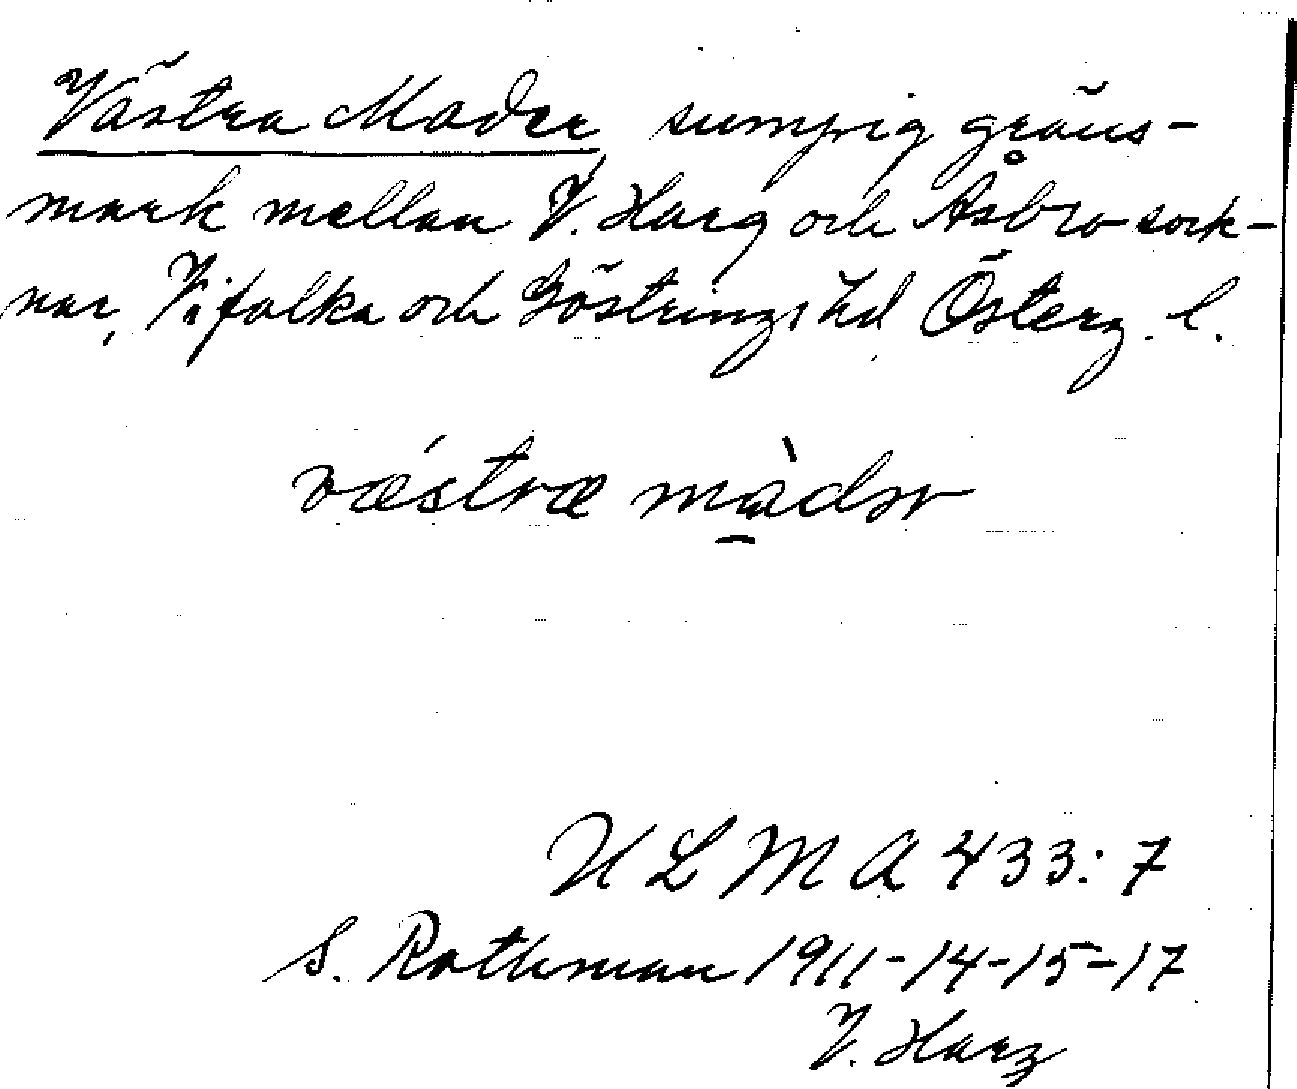 Västra Mader, sumpig gräs-
mark mellan V. Harg och Åsbro sock-
nar, Vifolka och Göstrings hd Österg. l.
vǽstræ màdər
U L M A 433:7
S. Rothman 1911-14-15-17
V. Harg